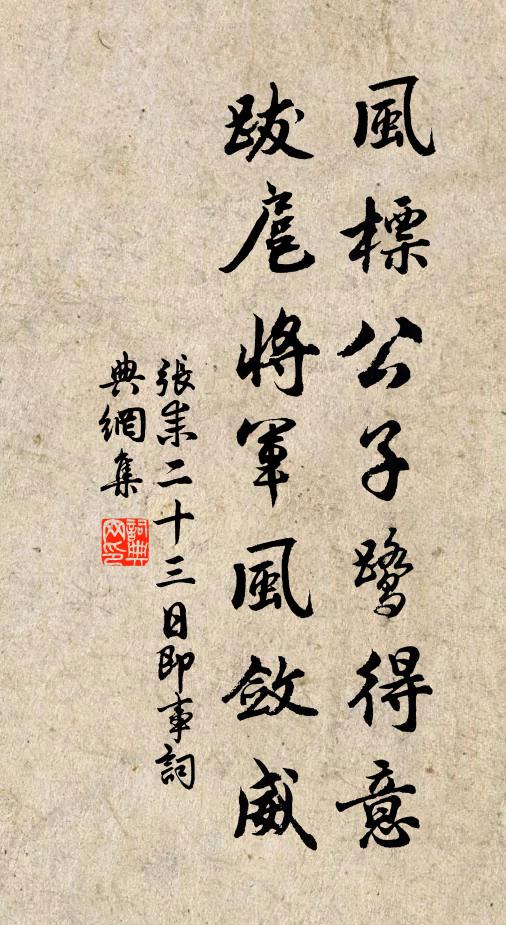 風標公子鷺得意
跋扈將軍風斂威
張耒二十三日即事詞
典網集
詞典網印